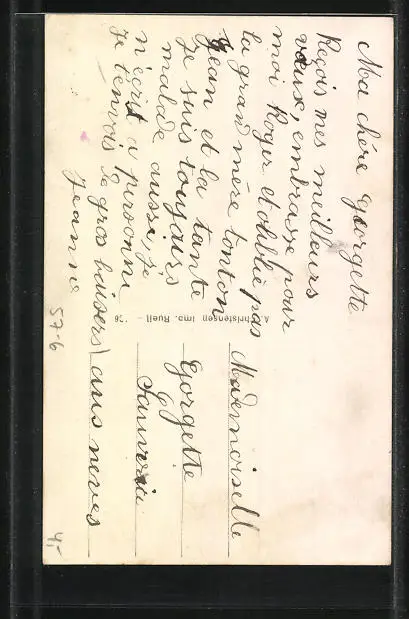 Ma chère georgette
Reçois mes meilleurs
vœux, embrasse pour
moi Roger et oublie pas
la grand mère tonton
jean et la tante
Je suis toujours
malade aussi, je
n'écrit a personne
Je t'envois de gros baisers
Jeanne
Mademoiselle
Georgette
A. Christensen imp. Rueil
57-6
4,-